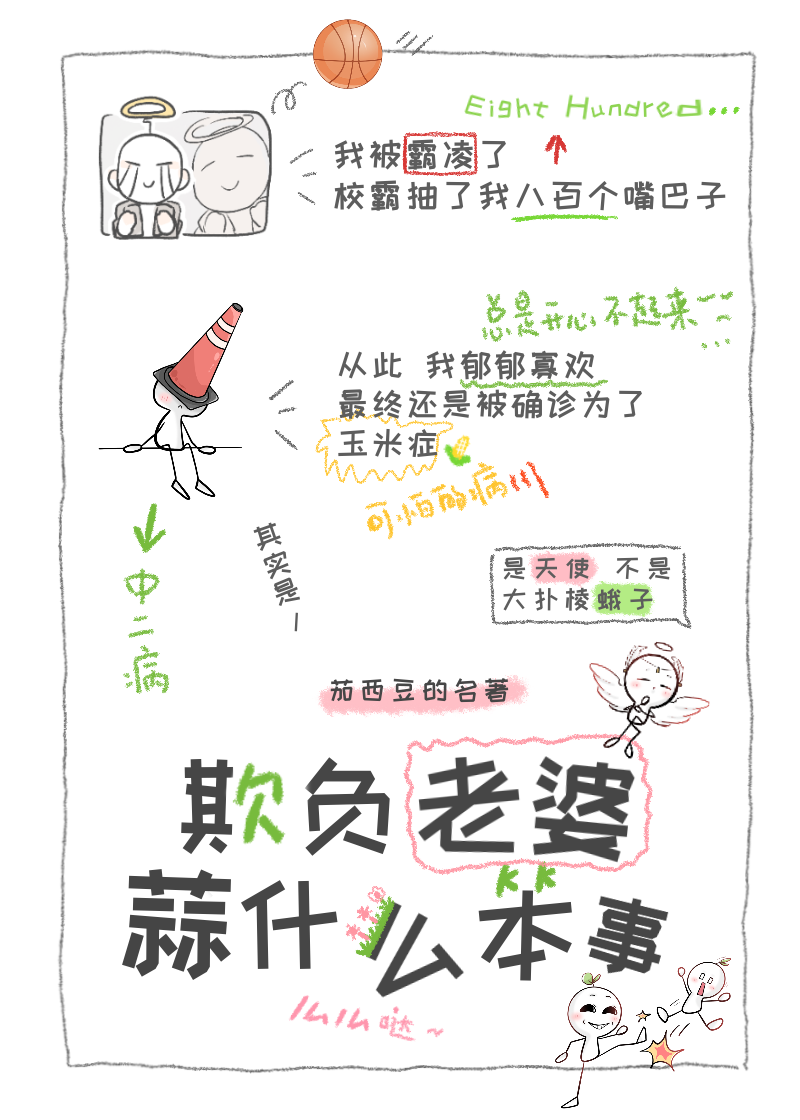 Eight Hundred...
我被霸凌了
校霸抽了我八百个嘴巴子
总是开心不起来
从此 我郁郁寡欢
最终还是被确诊为了
玉米症
可怕的病
其实是
中二病
是天使 不是
大扑棱蛾子
茄西豆的名著
欺负老婆
蒜什么本事
么么哒~